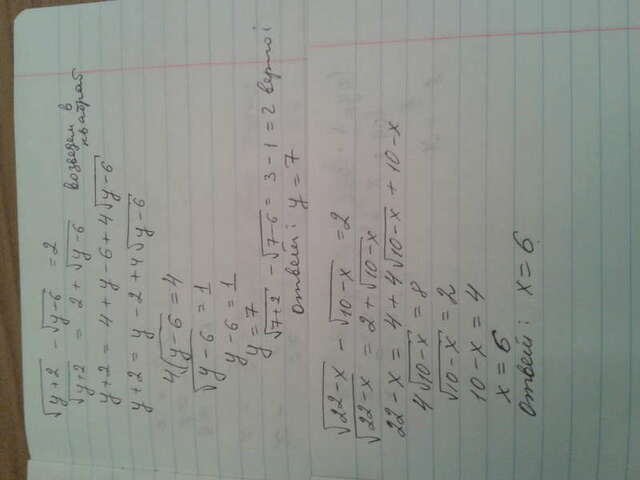 √y+2 - √y-6 = 2
√y+2 = 2 + √y-6 возведем в квадрат
y+2 = 4 + y-6 + 4√y-6
y+2 = y-2+4√y-6
4√y-6 = 4
√y-6 = 1
y-6 = 1
y = 7
√7+2 - √7-6 = 3-1 = 2 верно!
Ответ: y = 7
√22-x - √10-x = 2
√22-x = 2 + √10-x
22-x = 4 + 4√10-x + 10-x
4√10-x = 8
√10-x = 2
10-x = 4
x = 6
Ответ: x = 6